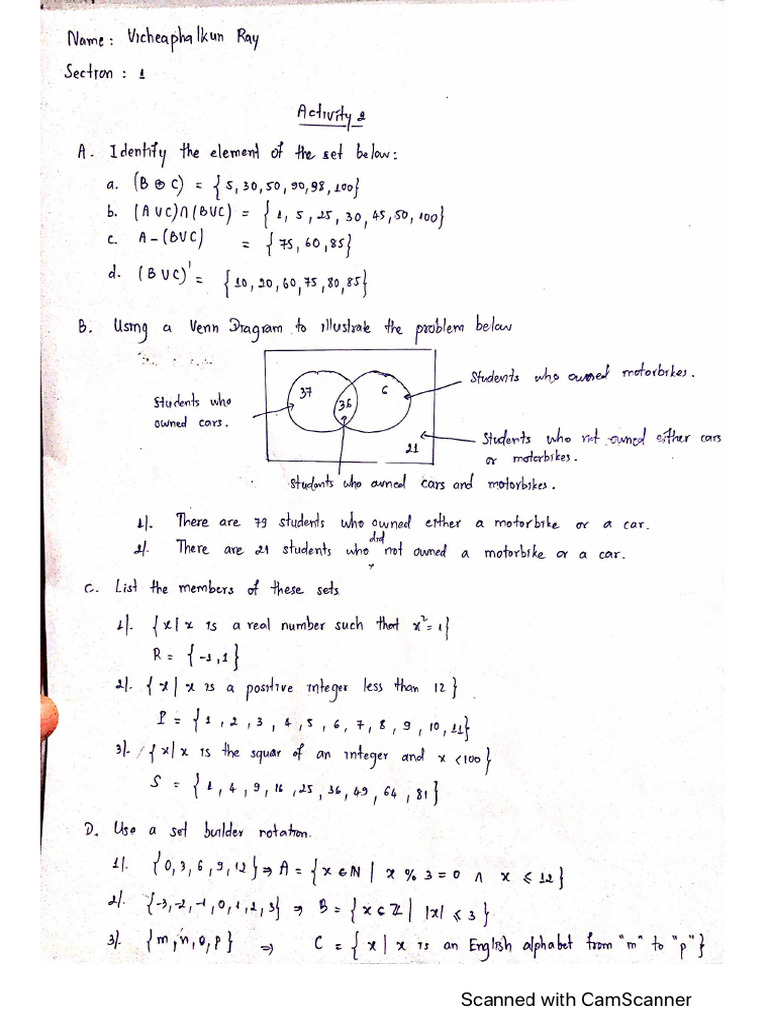 Name: Vicheaphalkun Ray
Section : 1
Activity 2
A. Identify the element of the set below:
a. (B ⊕ C) = {5, 30, 50, 90, 98, 100}
b. (A ∪ C) ∩ (B ∪ C) = {1, 5, 25, 30, 45, 50, 100}
c. A - (B ∪ C) = {75, 60, 85}
d. (B ∪ C)' = {10, 20, 60, 75, 80, 85}
B. Using a Venn Diagram to illustrate the problem below
37
36
6
21
Students who owned motorbikes.
Students who
owned cars.
Students who not owned either cars
or motorbikes.
Students who owned cars and motorbikes.
1/. There are 79 students who owned either a motorbike or a car.
2/. There are 21 students who did not owned a motorbike or a car.
C. List the members of these sets
1/. {x | x is a real number such that x² = 1}
R = {-1, 1}
2/. {x | x is a positive integer less than 12}
P = {1, 2, 3, 4, 5, 6, 7, 8, 9, 10, 11}
3/. {x | x is the squar of an integer and x < 100}
S = {1, 4, 9, 16, 25, 36, 49, 64, 81}
D. Use a set builder rotation.
1/. {0, 3, 6, 9, 12} ⇒ A = {x ∈ N | x % 3 = 0 ∧ x ⩽ 12}
2/. {-3, -2, -1, 0, 1, 2, 3} ⇒ B = {x ∈ Z | |x| ⩽ 3}
3/. {m, n, o, p} ⇒ C = {x | x is an English alphabet from "m" to "p"}
Scanned with CamScanner